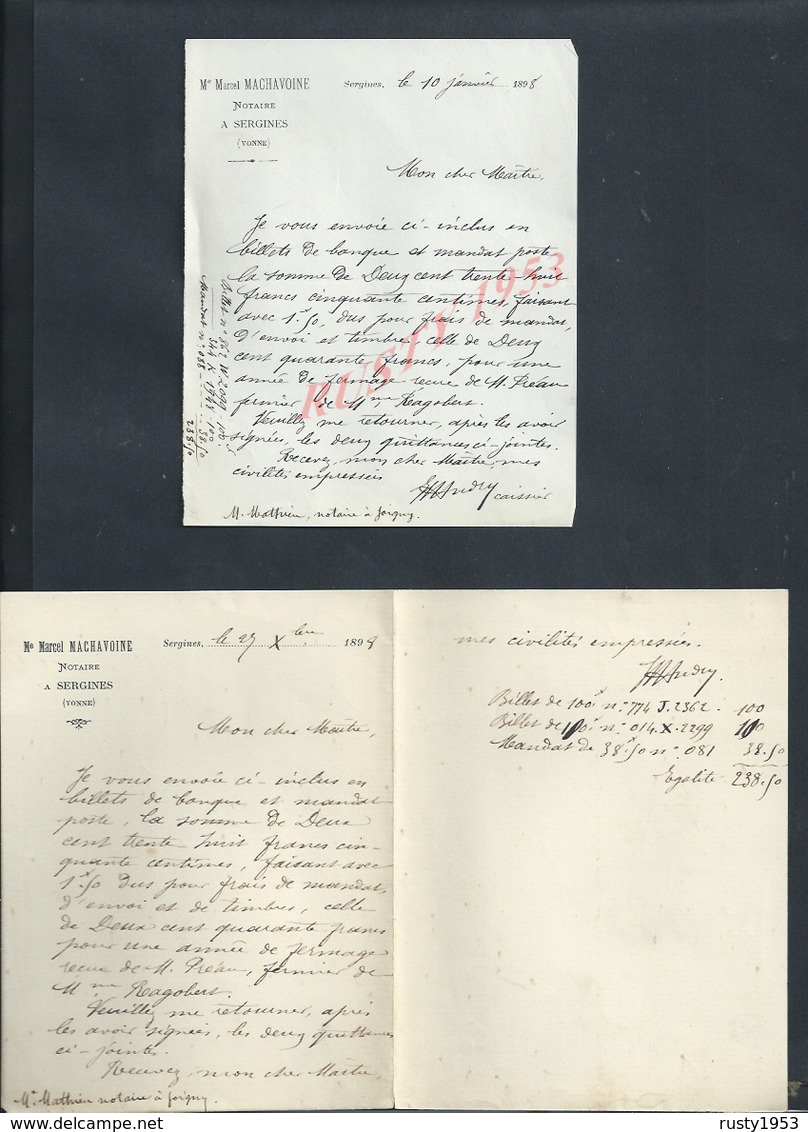 Me Marcel MACHAVOINE
NOTAIRE
A SERGINES
(YONNE)
Sergines, le 10 janvier 1898
Mon cher Maître,
Je vous envoie ci-inclus en
billets de banque et mandat poste
la somme de Deux cent trente huit
francs cinquante centimes, faisant
avec 1f.50, dus pour frais de mandat,
d'envoi et timbre, celle de Deux
cent quarante francs, pour une
année de fermage reçue de M. Préau
fermier de Mme Ragobert.
Veuillez me retourner, après les avoir
signées, les deux quittances ci-jointes.
Recevez, mon cher Maître, mes
civilités empressées
caissier
M. Mathieu, notaire à Joigny.
238.50
RUSTY 1953
Me Marcel MACHAVOINE
NOTAIRE
A SERGINES
(YONNE)
Sergines, le 27 Xbre 1898
Mon cher Maître,
Je vous envoie ci-inclus en
billets de banque et mandat
poste, la somme de Deux
cent trente huit francs cin-
quante centimes, faisant avec
1f.50 dus pour frais de mandat,
d'envoi et de timbres, celle
de Deux cent quarante francs
pour une année de fermage
reçue de M. Préau, fermier de
Mme Ragobert.
Veuillez me retourner, après
les avoir signées, les deux quittances
ci-jointes.
Recevez, mon cher Maître,
M. Mathieu notaire à Joigny.
mes civilités empressées.
Billet de 100f no. 774 J.2362. 100
Billet de 100f no. 014.X.2299 100
Mandat de 38f.50 no. 081 38.50
Egalité 238.50
delcampe.net
rusty1953